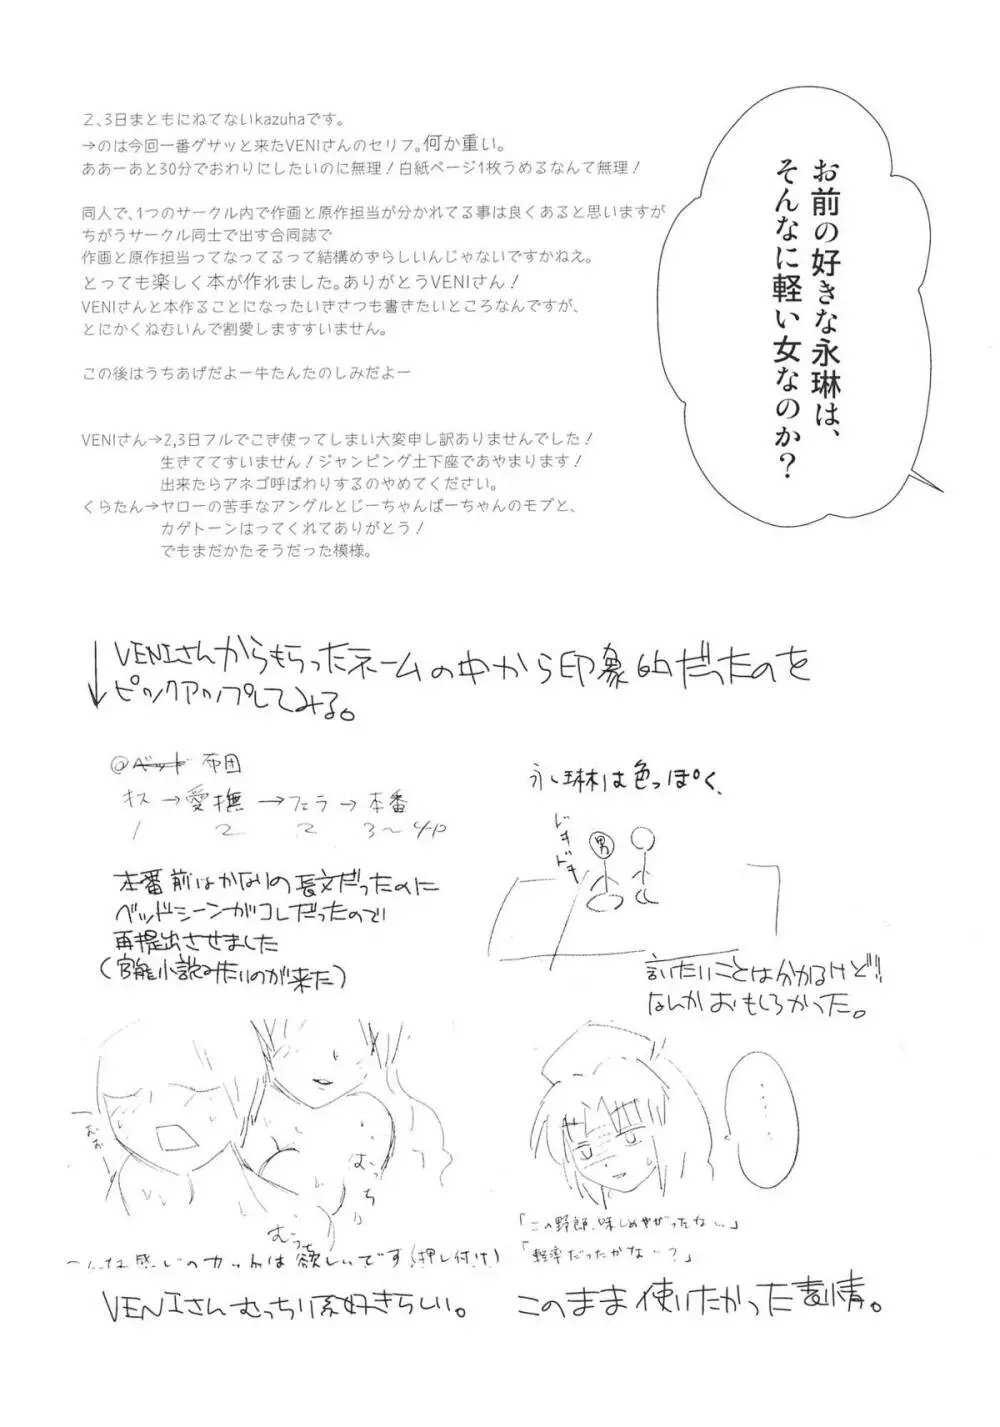 お前の好きな永琳は、
そんなに軽い女なのか?
2、3日まともにねてないkazuhaです。
→のは今回一番グサッと来たVENIさんのセリフ。何か重い。
ああーあと30分でおわりにしたいのに無理!白紙ページ1枚うめるなんて無理!
同人で、1つのサークル内で作画と原作担当が分かれてる事は良くあると思いますが
ちがうサークル同士で出す合同誌で
作画と原作担当ってなってるって結構めずらしいんじゃないですかねえ。
とっても楽しく本が作れました。ありがとうVENIさん!
VENIさんと本作ることになったいきさつも書きたいところなんですが、
とにかくねむいんで割愛しますすいません。
この後はうちあげだよー牛たんたのしみだよー
VENIさん→2,3日フルでこき使ってしまい大変申し訳ありませんでした!
生きててすいません!ジャンピング土下座であやまります!
出来たらアネゴ呼ばわりするのやめてください。
くらたん→ヤローの苦手なアングルとじーちゃんばーちゃんのモブと、
カゲトーンはってくれてありがとう!
でもまだかたそうだった模様。
↓VENIさんからもらったネームの中から印象的だったのを
ピックアップしてみる。
@ベット 布団
キス→愛撫→フェラ→本番
1 2 2 3〜4P
本番前はかなりの長文だったのに
ベッドシーンがコレだったので
再提出させました
(官能小説みたいのが来た)
永琳は色っぽく、
ドキドキ
男
言いたいことは分かるけど!!
なんかおもしろかった。
むっちり
むっち
こんな感じのカットは欲しいです(押し付け)
VENIさんむっちり系好きらしい。
……
「この野郎、味しめやがったな…」
「軽率だったかな…?」
このまま使いたかった表情。